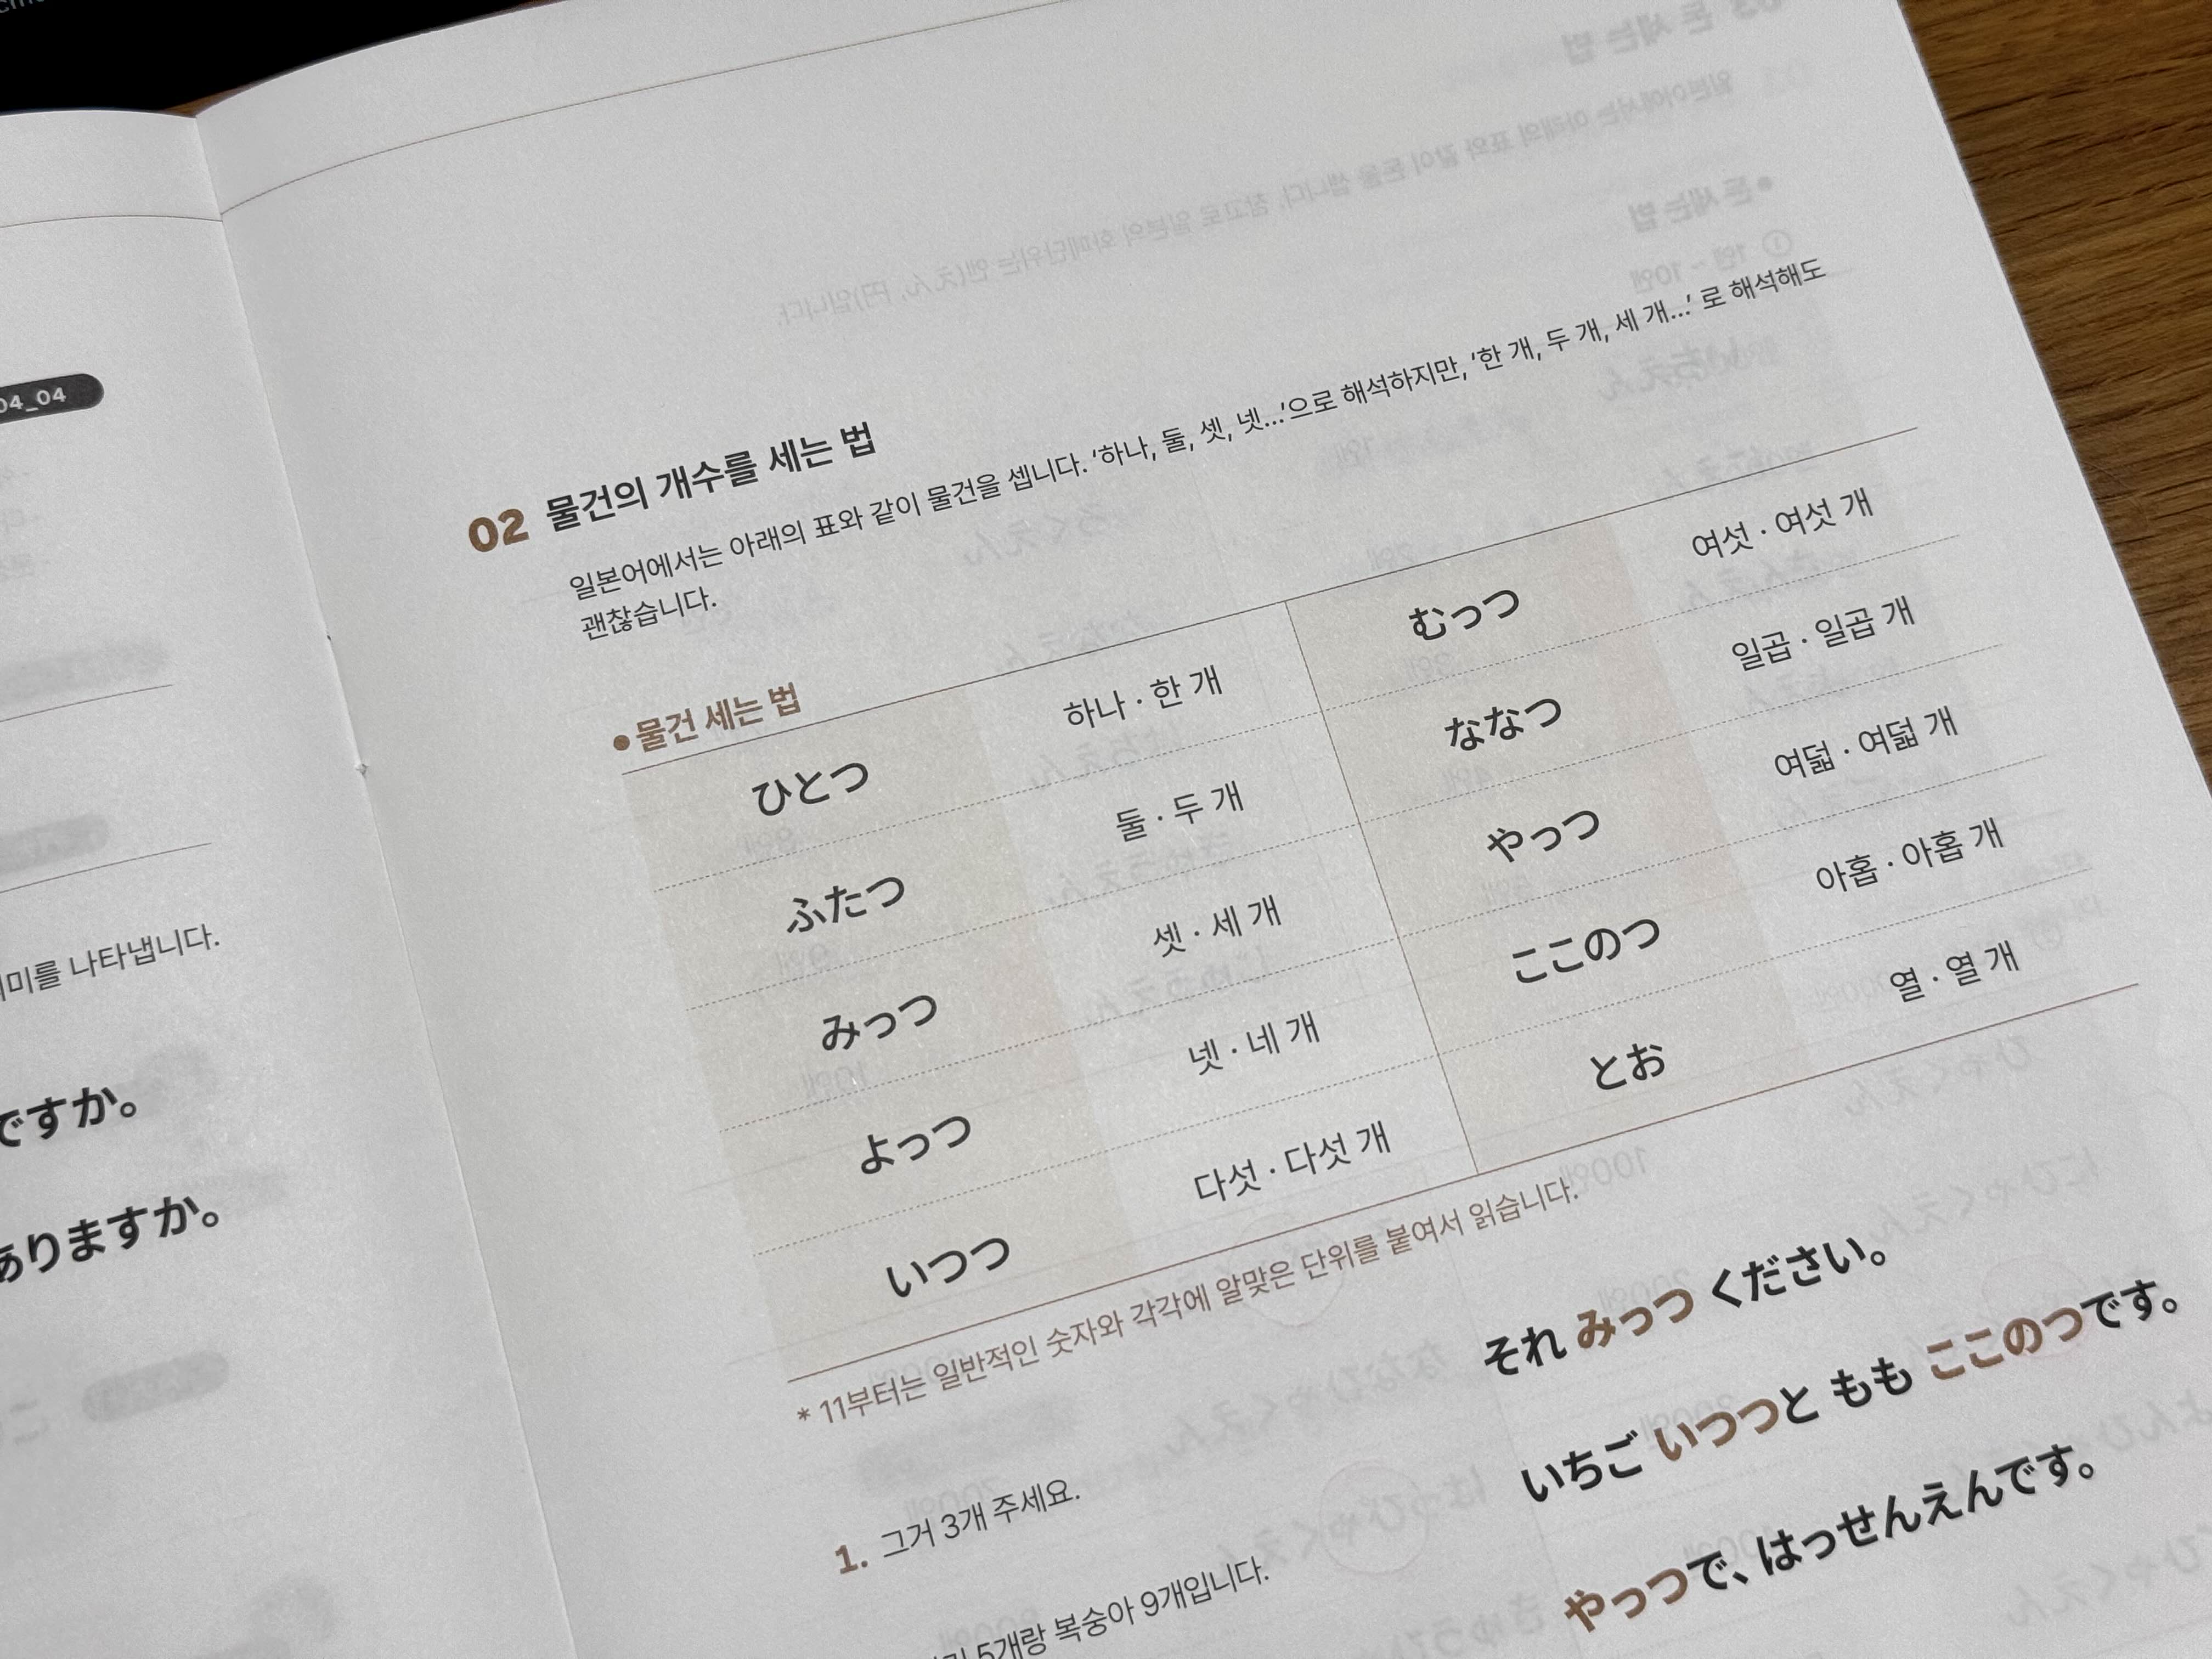 04_04
미를 나타냅니다.
ですか。
ありますか。
02 물건의 개수를 세는 법
일본어에서는 아래의 표와 같이 물건을 셉니다. ‘하나, 둘, 셋, 넷…’으로 해석하지만, ‘한 개, 두 개, 세 개…’ 로 해석해도
괜찮습니다.
•물건 세는 법
ひとつ 하나 · 한 개 むっつ 여섯 · 여섯 개
ふたつ 둘 · 두 개 ななつ 일곱 · 일곱 개
みっつ 셋 · 세 개 やっつ 여덟 · 여덟 개
よっつ 넷 · 네 개 ここのつ 아홉 · 아홉 개
いつつ 다섯 · 다섯 개 とお 열 · 열 개
* 11부터는 일반적인 숫자와 각각에 알맞은 단위를 붙여서 읽습니다.
1. 그거 3개 주세요. それ みっつ ください。
5개랑 복숭아 9개입니다. いちご いつつと もも ここのつです。
やっつで、はっせんえんです。